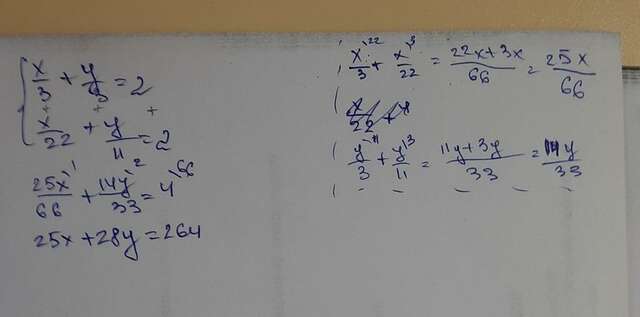 x/3 + y/3 = 2
x/22 + y/11 = 2
25x/66 + 14y/33 = 4
25x + 28y = 264
x/3 + x/22 = (22x + 3x)/66 = 25x/66
y/3 + y/11 = (11y + 3y)/33 = 14y/33